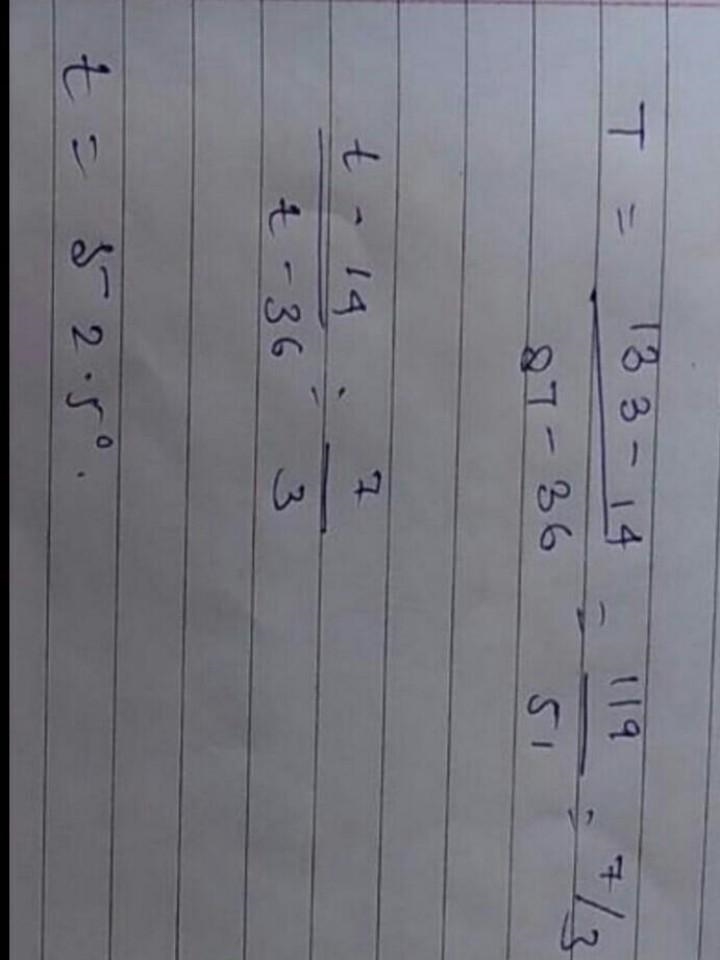 T = 133 - 14 / 87 - 36 = 119 / 51 = 7/3
t - 14 / t - 36 = 7 / 3
t = 52.5°.